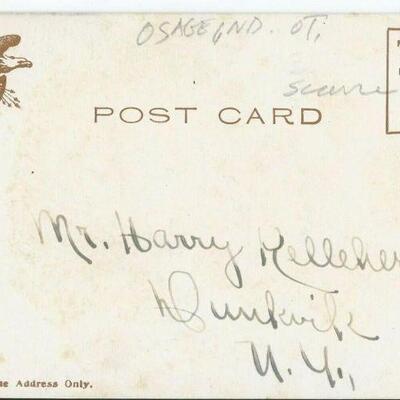 OSAGE, IND. OT,
scarce
POST CARD
Mr. Harry Kelleher
Dunkirk
N. Y.,
Address Only.